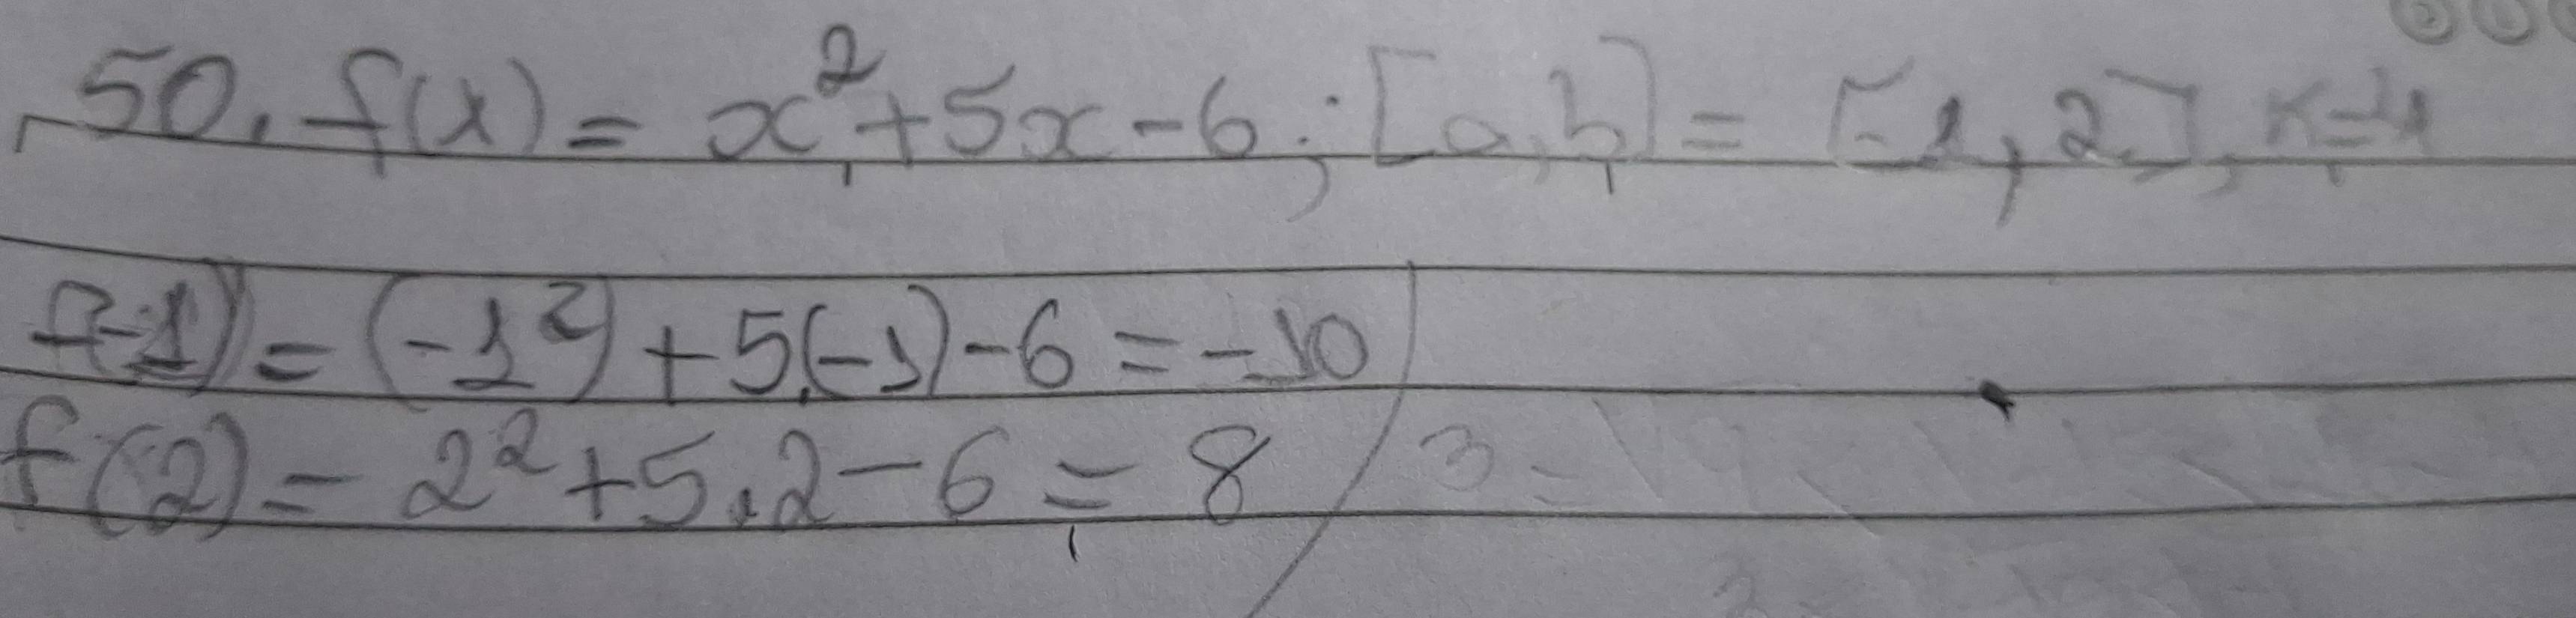 50. f(x) = x²+5x-6; [a,b] = [-1,2], K=4
f(-1) = (-1²) + 5.(-1) - 6 = -10
f(2) = 2² + 5.2 - 6 = 8